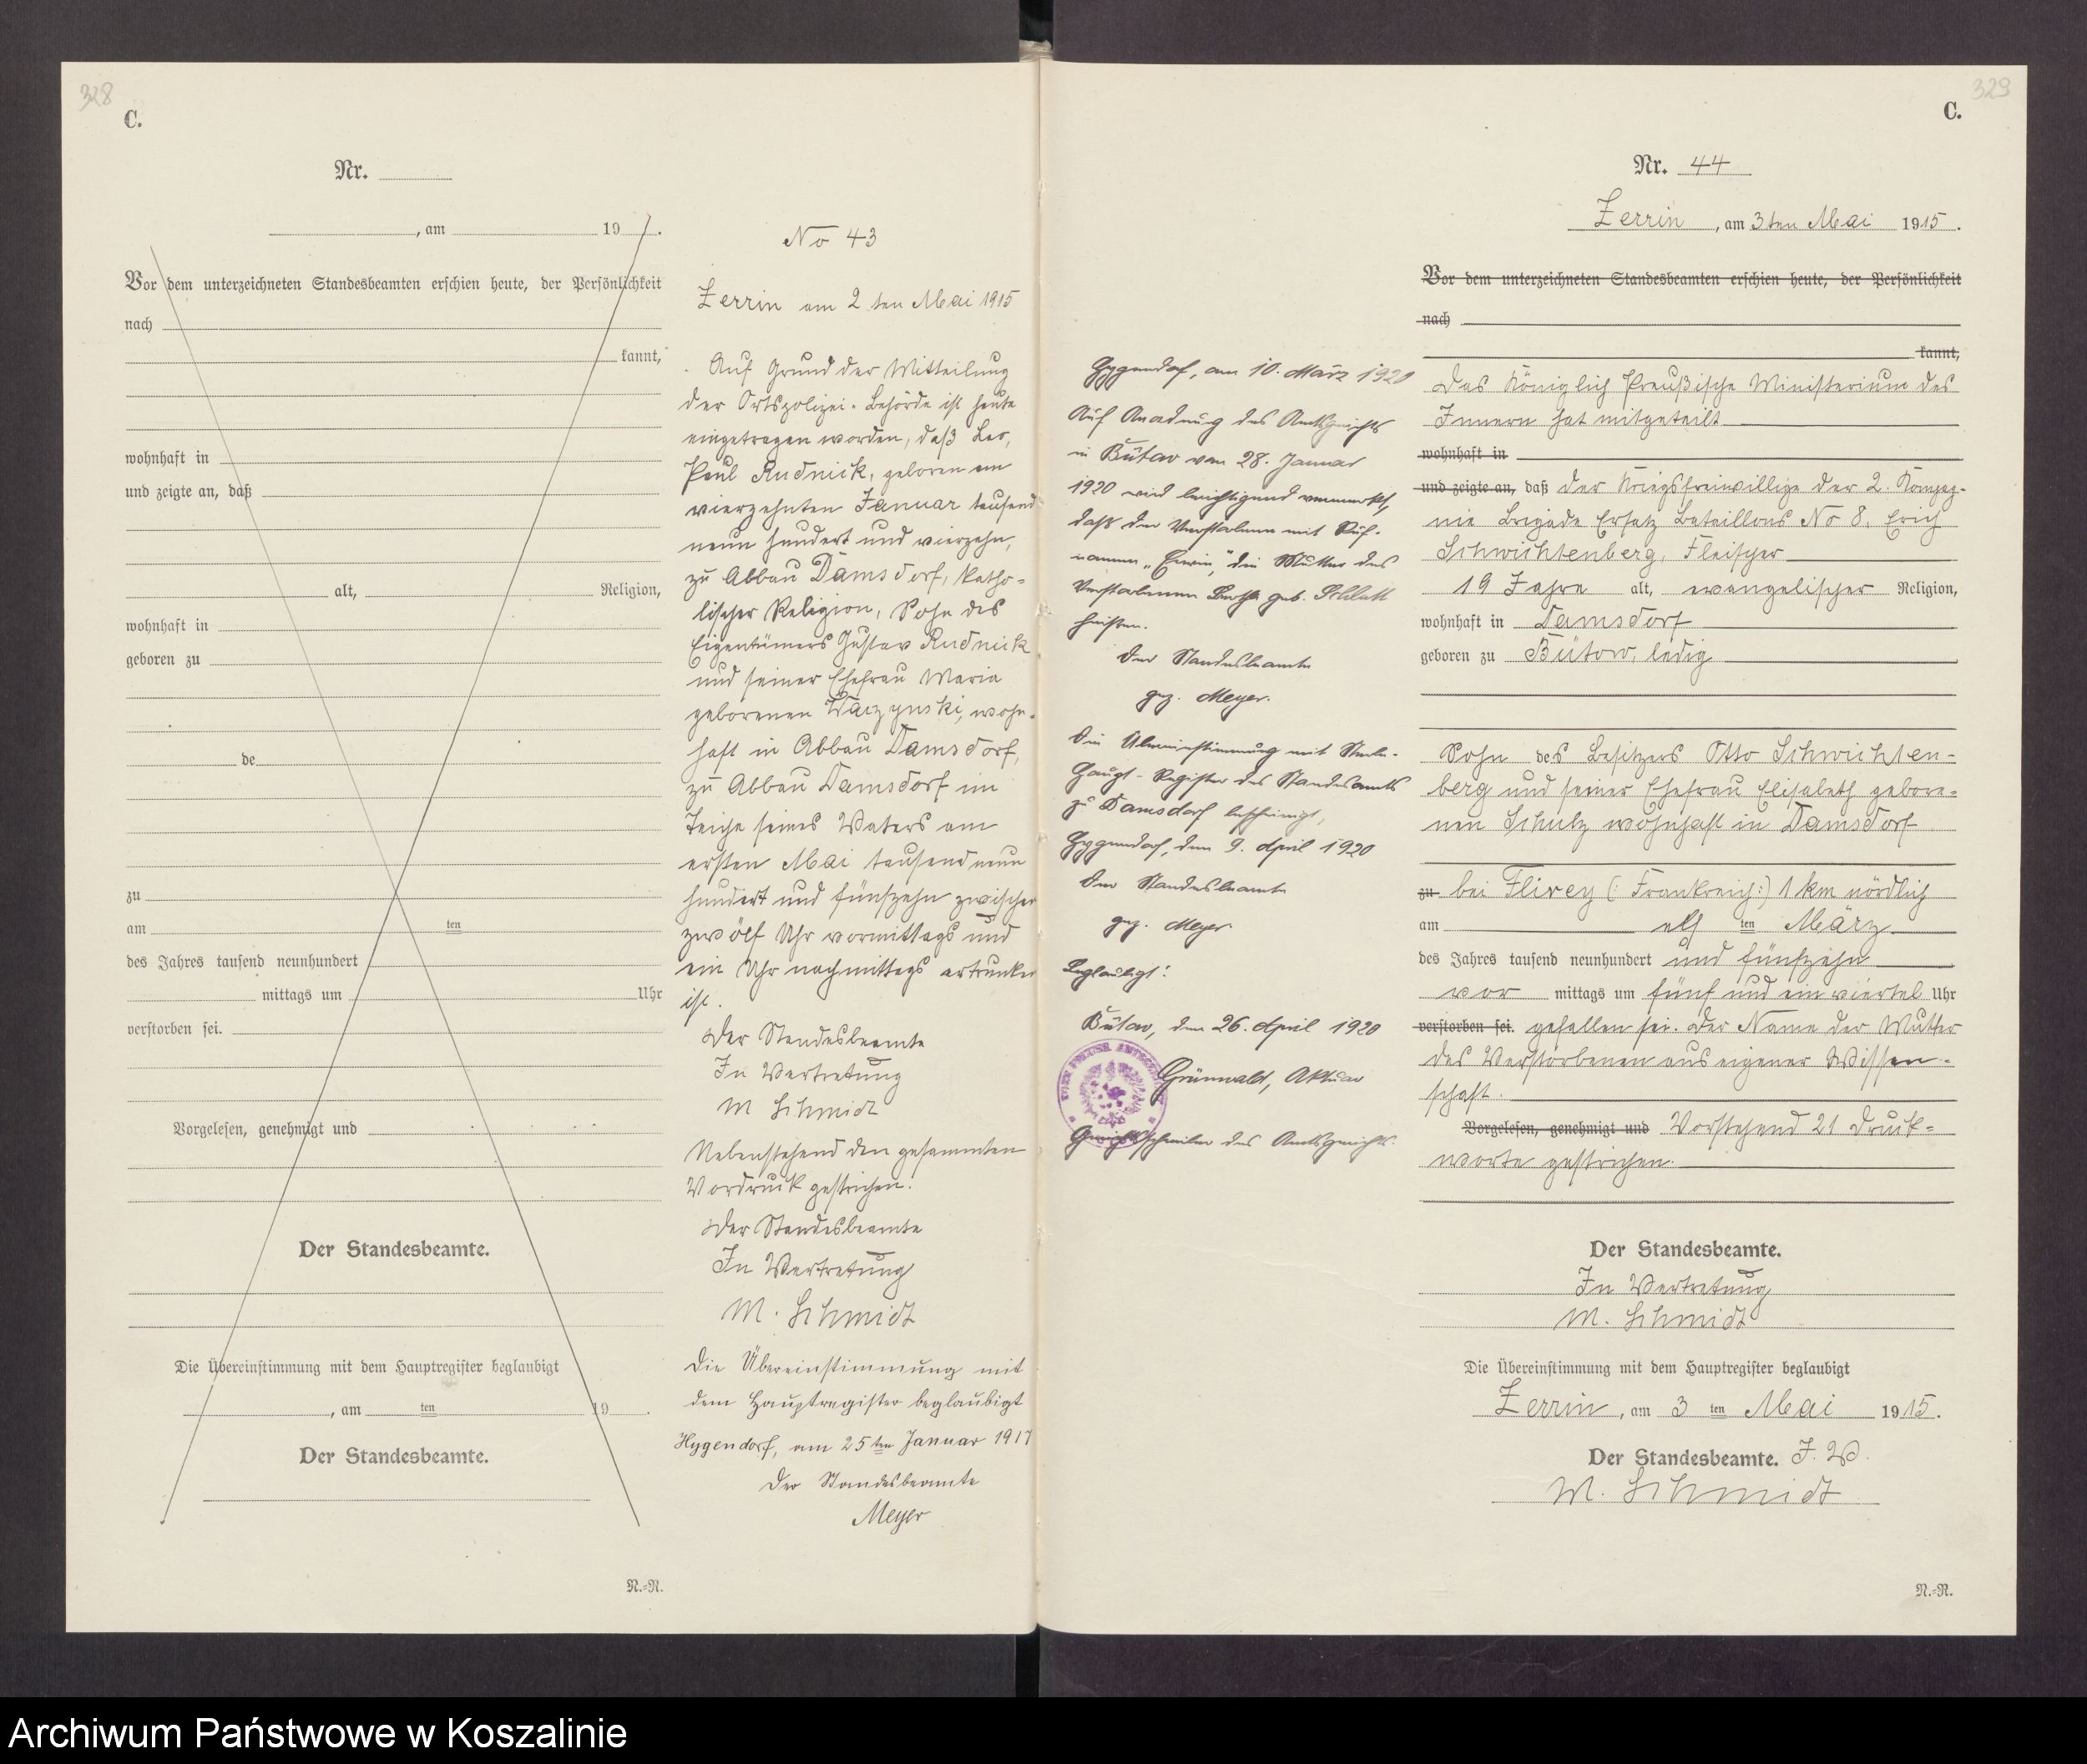 328
C.
Nr.
, am 19 .
Vor dem unterzeichneten Standesbeamten erschien heute, der Persönlichkeit
nach
kannt,
wohnhaft in
und zeigte an, daß
alt, Religion,
wohnhaft in
geboren zu
de
zu
am ten
des Jahres tausend neunhundert
mittags um Uhr
verstorben sei.
Vorgelesen, genehmigt und
Der Standesbeamte.
Die Übereinstimmung mit dem Hauptregister beglaubigt
, am ten 19 .
Der Standesbeamte.
N.=R.
No 43
Zerrin am 2 ten Mai 1915
Auf Grund der Mitteilung
der Ortspolizei-Behörde ist heute
eingetragen worden, daß Leo,
Paul Rudnick, geboren am
vierzehnten Januar tausend
neun hundert und vierzehn,
zu Abbau Damsdorf, katho-
lischer Religion, Sohn des
Eigentümers Gustav Rudnick
und seiner Ehefrau Maria
geborenen wohn-
haft in Abbau Damsdorf,
zu Abbau Damsdorf im
Teiche seines Vaters am
ersten Mai tausend neun
hundert und fünfzehn zwischen
zwölf Uhr vormittags und
ein Uhr nachmittags ertrunken
ist.
Der Standesbeamte
In Vertretung
M Schmidt
Nebenstehend den gesammten
Vordruck gestrichen.
Der Standesbeamte
In Vertretung
M. Schmidt
Die Übereinstimmung mit
dem Hauptregister beglaubigt
Hygendorf, am 25ten Januar 1917
Der Standesbeamte
Meyer
Hygendorf, am 10. März 1920
Auf Anordnung des Amtsgerichts
in Bütow vom 28. Januar
1920 wird berichtigend vermerkt,
daß der Verstorbene mit Ruf-
namen „Erwin", die Mutter des
Verstorbenen Bertha geb. Schlatt
heißen.
Der Standesbeamte
gez. Meyer.
Die Übereinstimmung mit dem
Haupt-Register des Standesamts
zu Damsdorf bescheinigt,
Hygendorf, den 9. April 1920
Der Standesbeamte
gez. Meyer.
Beglaubigt:
Bütow, den 26. April 1920
Grünwald, Aktuar
Gerichtsschreiber des Amtsgerichts.
329
C.
Nr. 44
Zerrin, am 3ten Mai 1915.
Vor dem unterzeichneten Standesbeamten erschien heute, der Persönlichkeit
nach
kannt,
Das Königlich Preußische Ministerium des
Innern hat mitgeteilt
wohnhaft in
und zeigte an, daß der Kriegsfreiwillige der 2. Kompag-
nie Brigade Ersatz Bataillons No 8, Erich
Schwichtenberg, Fleischer
19 Jahre alt, evangelischer Religion,
wohnhaft in Damsdorf
geboren zu Bütow, ledig
Sohn des Besitzers Otto Schwichten-
berg und seiner Ehefrau Elisabeth gebore-
nen Schulz wohnhaft in Damsdorf
zu bei Flirey (: Frankreich:) 1 km nördlich
am elf ten März
des Jahres tausend neunhundert und fünfzehn
vor mittags um fünf und ein viertel Uhr
verstorben sei. gefallen sei. Der Name der Mutter
des Verstorbenen aus eigener Wissen-
schaft.
Vorgelesen, genehmigt und Vorstehend 21 Druck-
worte gestrichen.
Der Standesbeamte.
In Vertretung
M. Schmidt
Die Übereinstimmung mit dem Hauptregister beglaubigt
Zerrin, am 3 ten Mai 1915.
Der Standesbeamte. J. V.
M. Schmidt
N.=R.
Archiwum Państwowe w Koszalinie